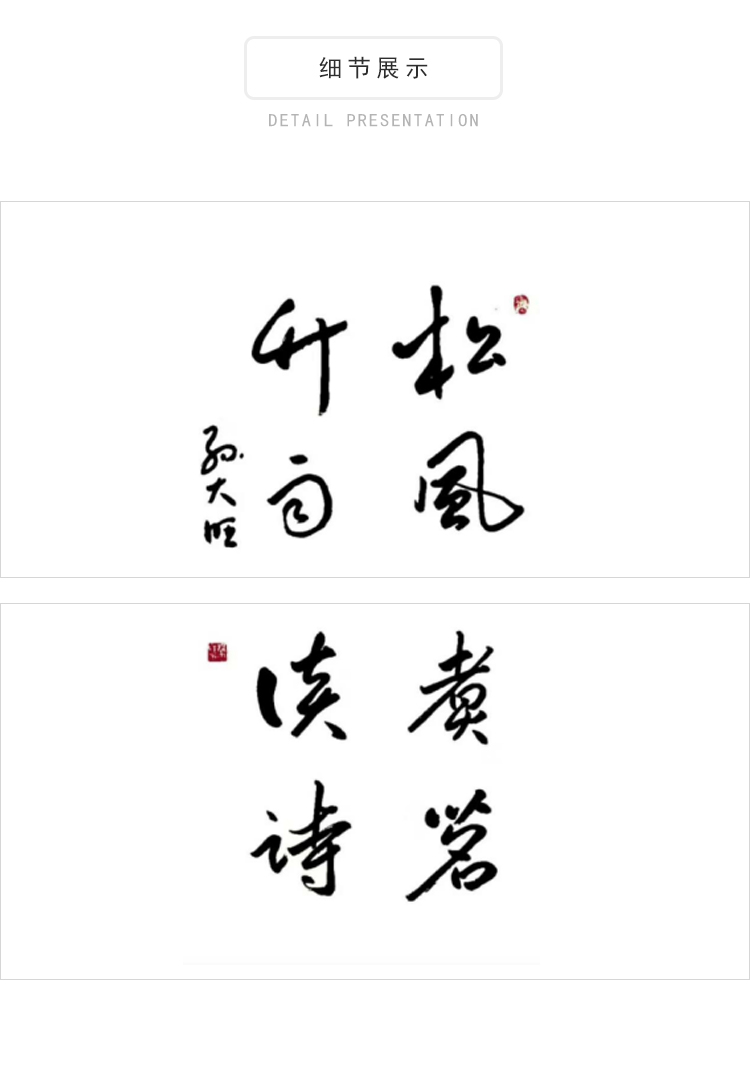 细节展示
DETAIL PRESENTATION
松風
竹雨
孫大旺
煮茗
談詩